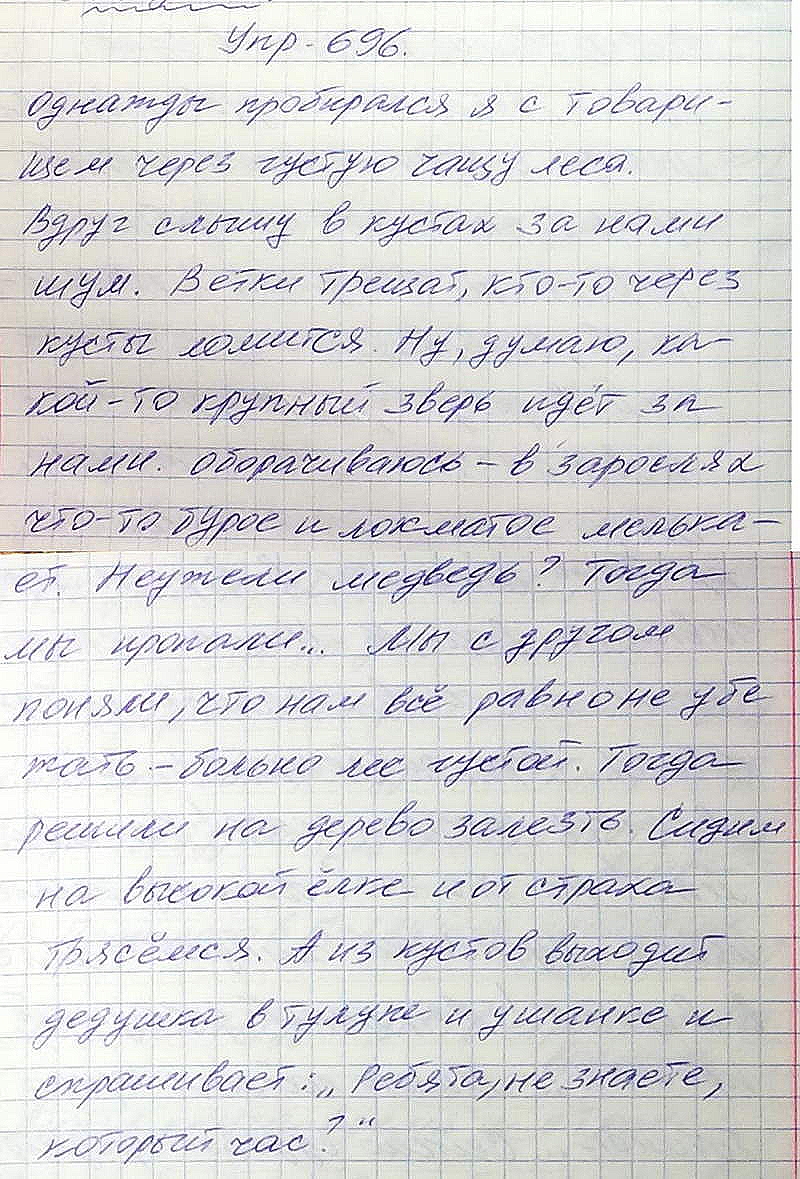 Упр - 696.
Однажды пробирался я с товари-
щем через густую чащу леса.
Вдруг слышу в кустах за нами
шум. Ветки трещат, кто-то через
кусты ломится. Ну, думаю, ка-
кой-то крупный зверь идёт за
нами. Оборачиваюсь - в зарослях
что-то бурое и локматое мелька-
ет. Неужели медведь? Тогда
мы пропали... Мы с другом
поняли, что нам всё равно не убе
жать - больно лес густой. Тогда
решили на дерево залезть. Сидим
на высокой ёлке и от страха
трясёмся. А из кустов выходит
дедушка в тулупе и ушанке и
спрашивает: „Ребята, не знаете,
который час?“